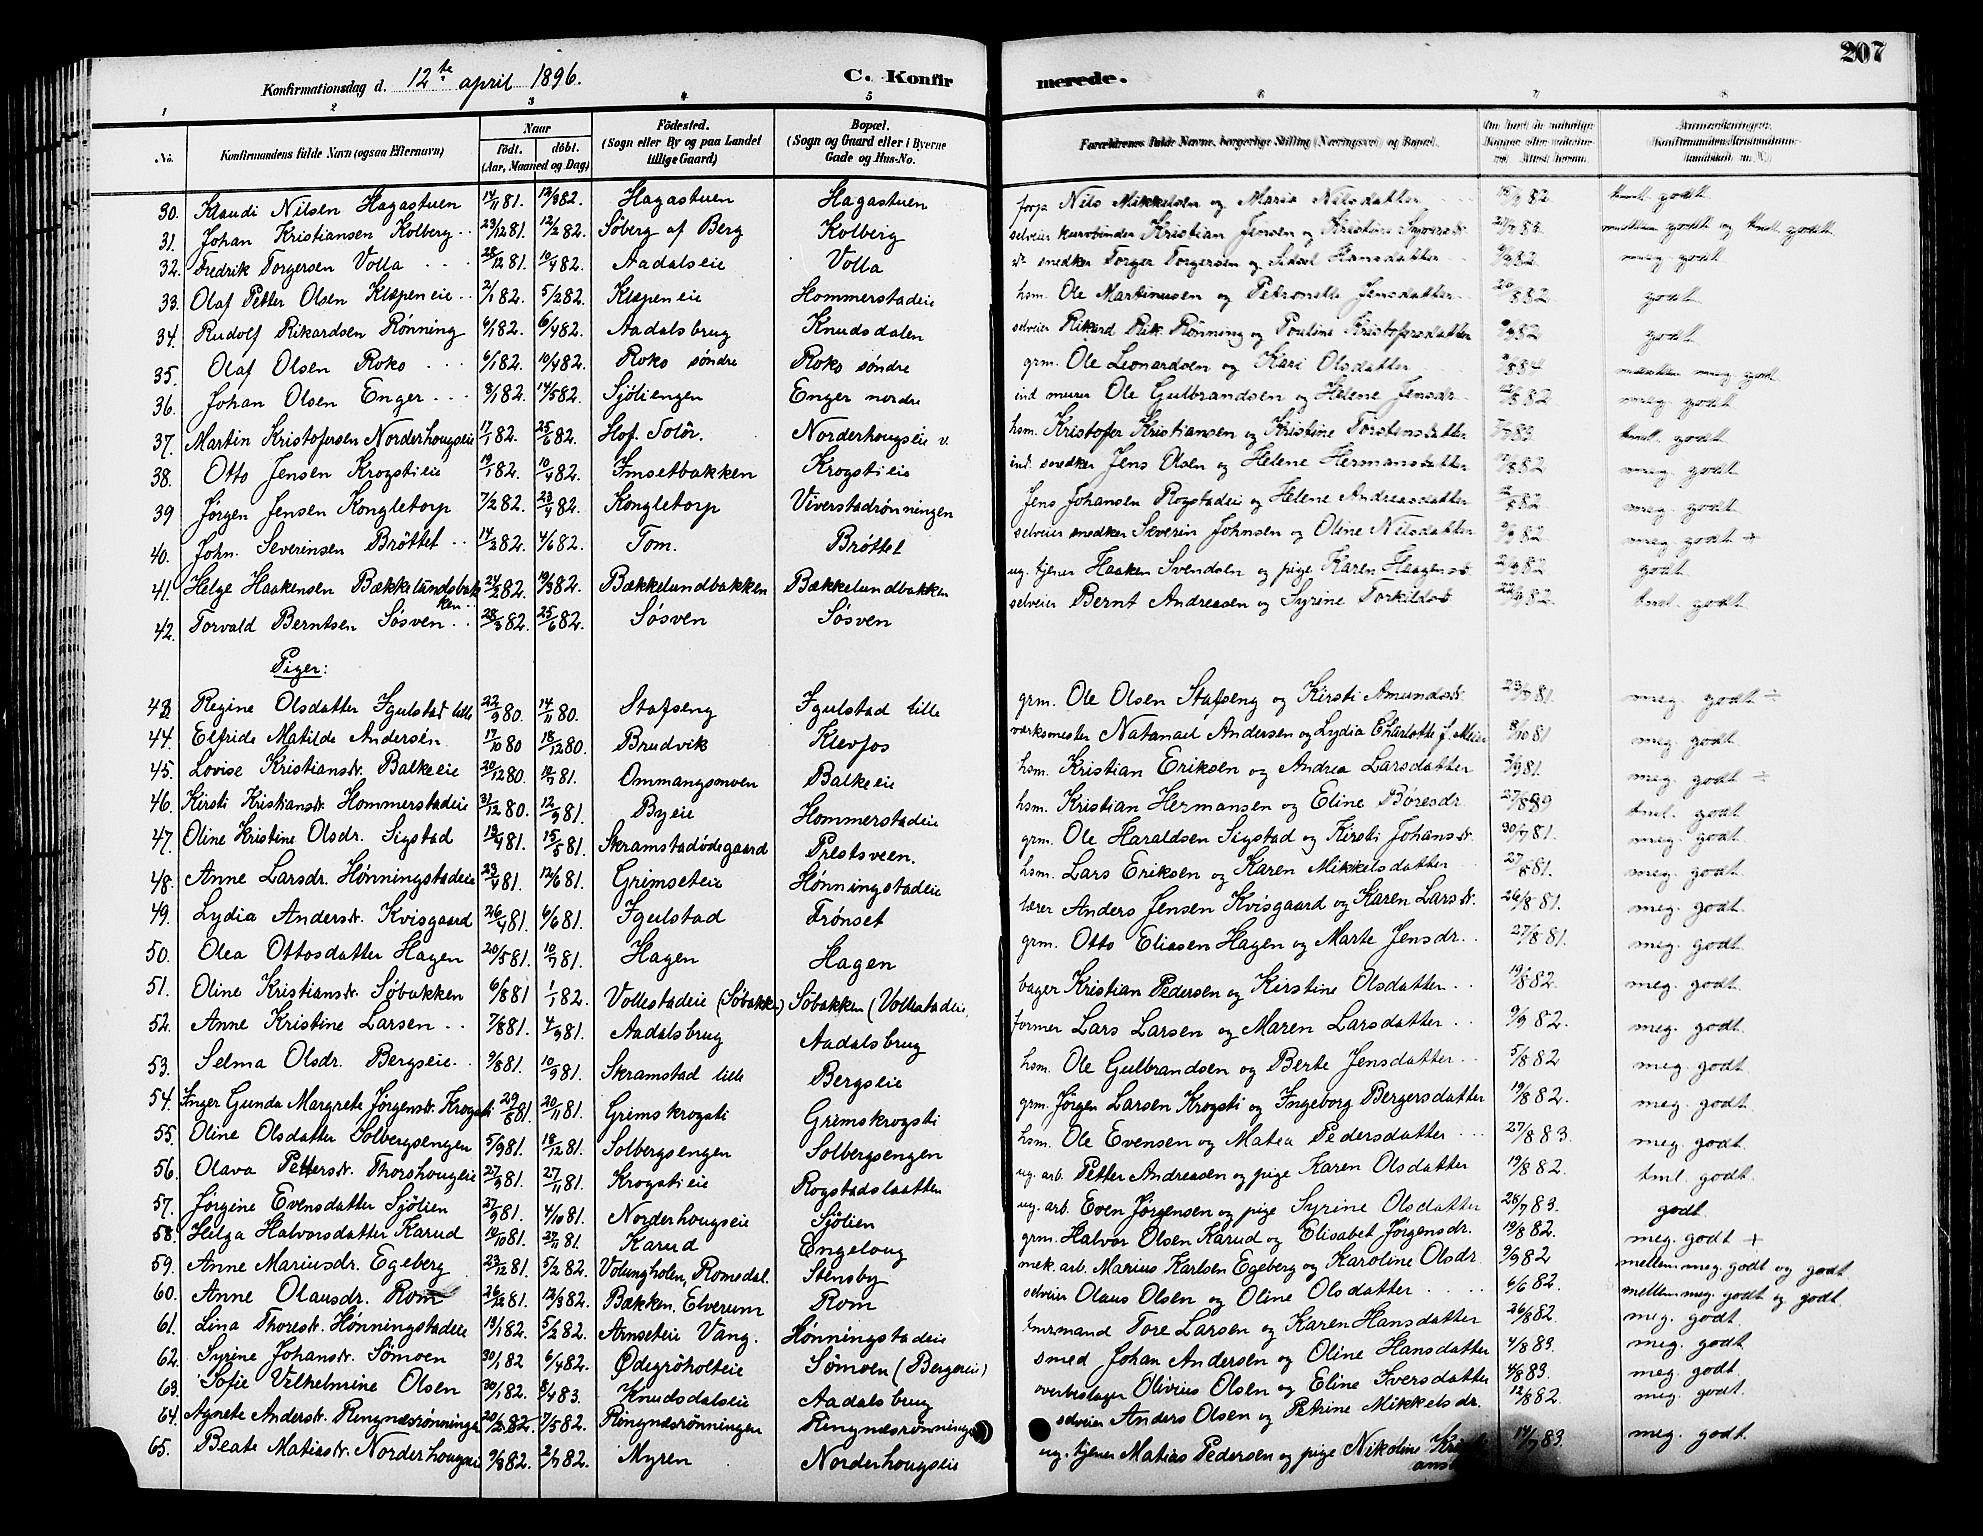 207
Konfirmationsdag d. 12te april 1896. C. Konfirmerede.
1 2 3 4 5 6 7 8
No. Konfirmandens fulde Navn (ogsaa Efternavn) Naar født. døbt. (Aar, Maaned og Dag) Fødested. (Sogn eller By og paa Landet tillige Gaard) Bopæl. (Sogn og Gaard eller i Byerne Gade og Hus-No. Forældrenes fulde Navne, borgerlige Stilling (Næringsvei) og Bopæl.
30. Klaudi Nilsen Hagastuen 14/1 81. 12/3 82. Hagastuen Hagastuen Nils Mikkelsen og Maria Nilsdatter 82 tml. godt
31. Johan Kristiansen Kolberg 23/12 81. 12/2 82. Söberg af Berg Kolberg selveier kurvbinder Kristian Jensen og Kristine 27/7 83. mellem godt og tml. godt
32. Fredrik Torgersen Volla 28/12 81. 10/4 82. Aadalseie Volla snedker Torger Torgersen og Sidsel Hansdatter 82 meg. godt
33. Olaf Petter Olsen Klæpeneie 2/1 82. 5/2 82. Klæpeneie Hommerstadeie hsm. Ole Martinusen og Petronelle Jensdatter 20/8 82 godt
34. Rudolf Rikardsen Rønning 6/1 82. 6/4 82. Aadalsbrug Knudsdalen selveier Rikard Rik. Rønning og Pouline Kristofersdatter 82 godt
35. Olaf Olsen Roko 6/1 82. 10/4 82. Roko søndre Roko søndre grm. Ole Leonardsen og Kari Olsdatter 84 meg. godt
36. Johan Olsen Enger 8/1 82. 14/5 82. Sjöliengen Enger nordre ind. murer Ole Gulbrandsen og Helene Jensdr. 12/8 82 meg. godt
37. Martin Kristofersen Norderhougseie 17/1 82. 25/6 82. Hof. Solör. Norderhougseie v. hsm. Kristofer Kristiansen og Kristine Torstensdatter 83. tml. godt
38. Otto Jensen Krogstieie 19/1 82. 10/4 82. Imsetbakken Krogstieie ind. snedker Jens Olsen og Helene Hermansdatter 82 meg. godt
39 Jørgen Jensen Kongletorp 7/2 82. 23/4 82. Kongletorp Viverstadrønningen Jens Johansen Rogstadeie og Helene Andreasdatter 82. meg. godt
40. John. Severinsen Brøttet 14/2 82. 4/6 82. Tom. Brøttet selveier snedker Severin Johnsen og Oline Nilsdatter 82 meg. godt +
41. Helge Haakensen Bækkelundsbakken 24/2 82. 19/3 82. Bækkelundbakken Bækkelundbakken ug. tjener Haaken Svendsen og pige Karen Haagensd. 82 godt
42. Torvald Berntsen Søsven 28/3 82. 25/6 82. Søsven Søsven selveier Bernt Andreasen og Syrine Torkildsd. 82. tml. godt
Piger:
43. Regine Olsdatter Igulstad lille 22/9 80. 14/11 80. Stafseng Igulstad lille grm. Ole Olsen Stafseng og Kirsti Amundsd. 81. meg. godt ÷
44. Elfride Matilde Andersen 17/10 80 18/12 80. Brudvik Klevfos verksmester Natanael Andersen og Lydia Charlotte f. Meier 8/10 81 meg. godt
45. Lovise Kristiansdr. Balkeeie 20/12 80. 10/7 81. Ommangsmoen Balkeeie hsm. Kristian Eriksen og Andrea Larsdatter 81. meg. godt ÷
46. Kirsti Kristiansdr. Hommerstadeie 31/12 80. 12/9 81. Byeie Hommerstadeie hsm. Kristian Hermansen og Eline Børesdr. tml. godt
47. Oline Kristine Olsdr. Sigstad 19/4 81. 15/5 81. Skramstadødegaard Prestsveen. grm. Ole Haraldsen Sigstad og Kirsti Johansdr. 30/7 81. meg. godt
48. Anne Larsdr. Hønningstadeie 23/4 81. 12/6 81. Grimseteie Hønningstadeie hsm. Lars Eriksen og Karen Mikkelsdatter 27/8 81. meg. godt.
49. Lydia Andersdr. Kvisgaard 26/4 81. 6/6 81. Igulstad Frønset lærer Anders Jensen Kvisgaard og Karen Larsdr. 26/8 81. meg. godt.
50. Olea Ottosdatter Hagen 20/5 81. 10/7 81. Hagen Hagen grm. Otto Eliasen Hagen og Marte Jensdr. 27/8 81. meg. godt.
51. Oline Kristiansdr. Søbakken 6/8 81 1/1 82. Vollestadeie (Søbakken) Søbakken (Vollestadeie) bager Kristian Pedersen og Kirstine Olsdatter 19/8 82. meg. godt.
52. Anne Kristine Larsen 7/8 81. 4/9 81. Aadalsbrug Aadalsbrug former Lars Larsen og Maren Larsdatter 9/9 82. meg. godt.
53. Selma Olsdr. Bergseie 9/8 81. 10/9 81. Skramstad lille Bergseie hsm. Ole Gulbrandsen og Berte Jensdatter 5/8 82 meg. godt.
54. Inger Gunda Margrete Jørgensdr. Krogsti 29/8 81. 20/11 81. Grimskrogsti Grimskrogsti grm. Jørgen Larsen Krogsti og Ingeborg Bergersdatter 19/8 82. meg. godt.
55. Oline Olsdatter Solbergsengen 5/9 81. 18/12 81. Solbergsengen Solbergsengen hsm. Ole Evensen og Matea Pedersdatter 27/8 83. meg. godt.
56. Olava Pettersdr. Thorshougeie 27/9 81. 27/11 81. Krogstieie Rogstadslaatten ug. arb. Petter Andreasen og pige Karen Olsdatter 19/8 82. tml. godt.
57. Jørgine Evensdatter Sjølien 27/9 81. 4/10 81. Norderhougseie Sjølien ug. arb. Even Jørgensen og pige Syrine Olsdatter 28/7 83. godt.
58. Helga Halvorsdatter Karud 10/10 81. 27/11 81. Karud Engeloug grm. Halvor Olsen Karud og Elisabet Jørgensdr. 19/8 82. meg. godt +
59. Anne Mariusdr. Egeberg 23/12 81. 5/2 82. Volungholen, Romsdal. Stensby mek. arb. Marius Karlsen Egeberg og Karoline Olsdr. 9/9 82 mellem meg. godt og godt
60. Anne Olausdr. Rom 26/12 81. 12/3 82. Bækken, Elverum Rom selveier Olaus Olsen og Oline Olsdatter 6/6 82. mellem meg. godt og godt.
61. Lina Thoresdr. Hønningstadeie 19/1 82. 5/2 82. Arnseteie Vang. Hønningstadeie Tore Larsen og Karen Hansdatter 26/8 82. meg. godt.
62. Syrine Johansdr. Sømoen 30/1 82 6/4 82. Ødegrøholteie Sømoen (Bergseie) smed Johan Andersen og Oline Hansdatter 4/8 83. meg. godt.
63. Sofie Vilhelmine Olsen 30/1 82. 8/4 83. Knudsdalseie Aadalsbrug Olivius Olsen og Eline Iversdatter 4/8 83. meg. godt.
64. Agnete Andersdr. Ringnæsrønningen 20/2 82. 7/5 82. Ringnæsrønningen Ringnæsrønningen selveier Anders Olsen og Petrine Mikkelsdr. 12/8 82. meg. godt.
65. Beate Matiasdr. Norderhougseie 9/3 82. 2/7 82. Myren Norderhougseie ug. tjener Matias Pedersen og pige Nikoline 14/7 83. meg. godt.